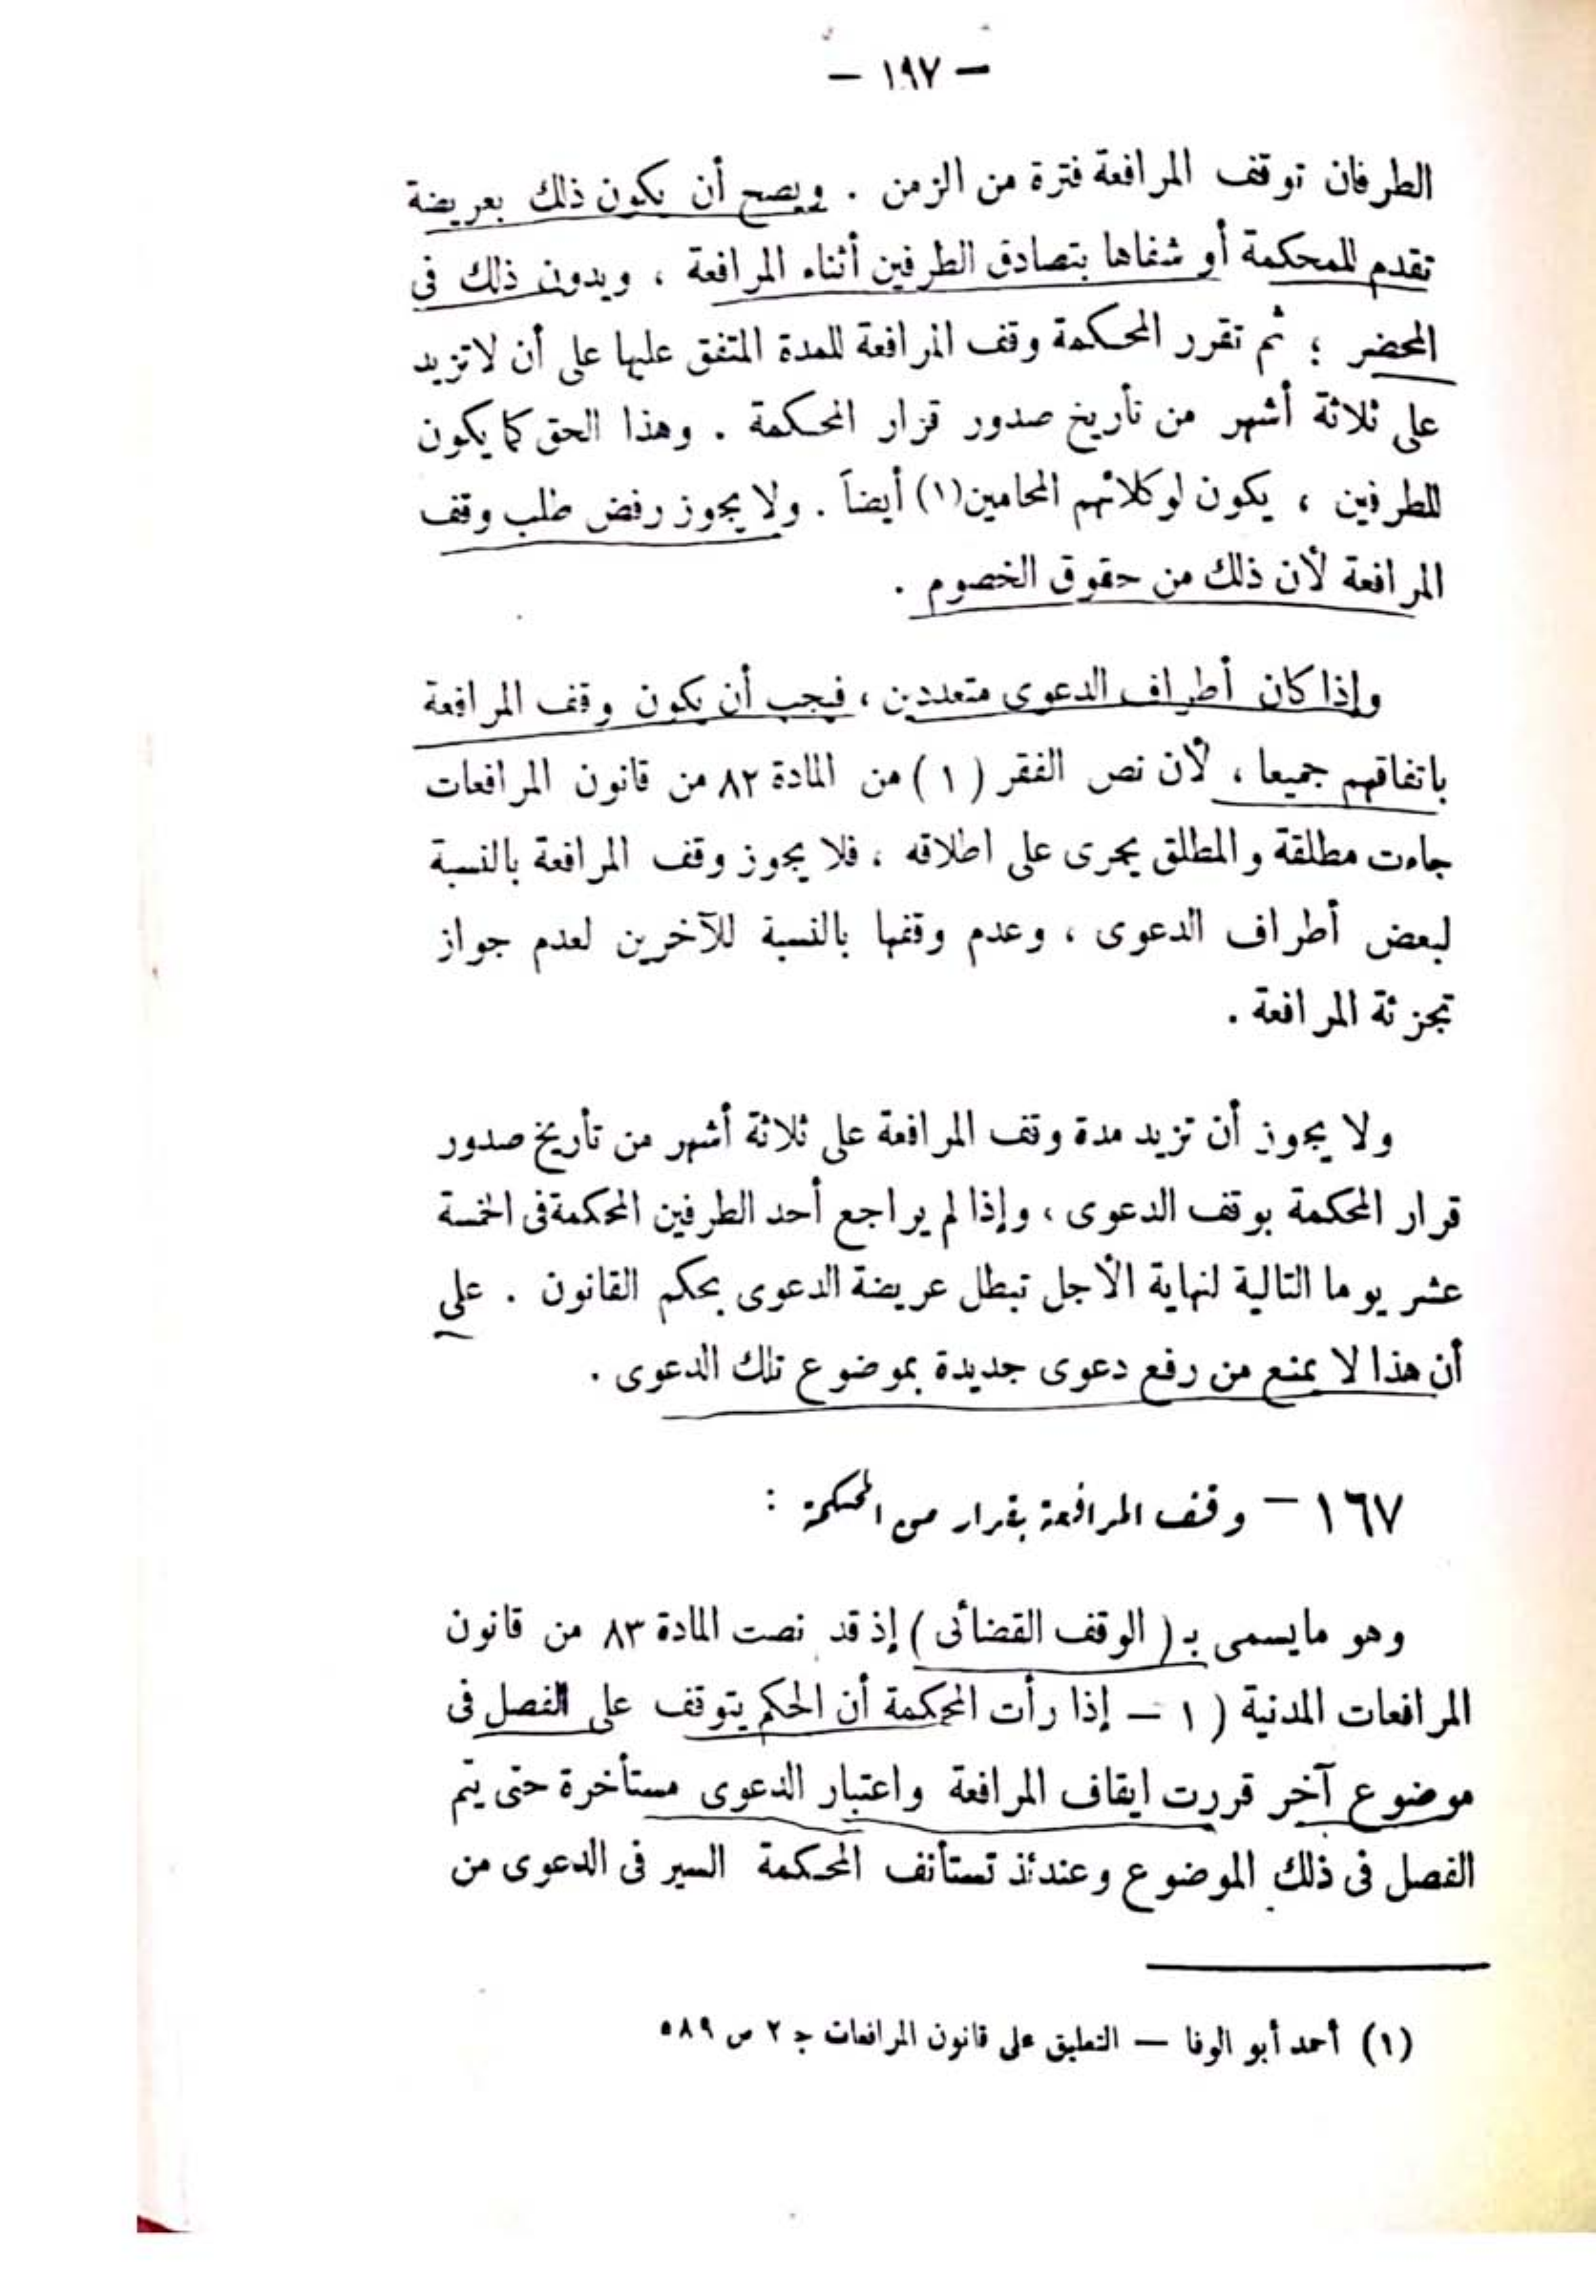 — ١٩٧ —
الطرفان توقف المرافعة فترة من الزمن . ويصح أن يكون ذلك بعريضة
تقدم للمحكمة أو شفاها بتصادق الطرفين أثناء المرافعة ، ويدون ذلك فى
المحضر ؛ ثم تقرر المحكمة وقف المرافعة للمدة المتفق عليها على أن لاتزيد
على ثلاثة أشهر من تأريخ صدور قرار المحكمة . وهذا الحق كما يكون
للطرفين ، يكون لوكلائهم المحامين(١) أيضاً . ولا يجوز رفض طلب وقف
المرافعة لأن ذلك من حقوق الخصوم .
وإذا كان أطراف الدعوى متعددين ، فيجب أن يكون وقف المرافعة
باتفاقهم جميعا ، لأن نص الفقر ( ١ ) من المادة ٨٢ من قانون المرافعات
جاءت مطلقة والمطلق يجرى على اطلاقه ، فلا يجوز وقف المرافعة بالنسبة
لبعض أطراف الدعوى ، وعدم وقفها بالنسبة للآخرين لعدم جواز
تجزئة المرافعة .
ولا يجوز أن تزيد مدة وقف المرافعة على ثلاثة أشهر من تأريخ صدور
قرار المحكمة بوقف الدعوى ، وإذا لم يراجع أحد الطرفين المحكمة فى الخمسة
عشر يوما التالية لنهاية الأجل تبطل عريضة الدعوى بحكم القانون . على
أن هذا لا يمنع من رفع دعوى جديدة بموضوع تلك الدعوى .
١٦٧ — وقف المرافعة بقرار من المحكمة :
وهو مايسمى بـ ( الوقف القضائى ) إذ قد نصت المادة ٨٣ من قانون
المرافعات المدنية ( ١ — إذا رأت المحكمة أن الحكم يتوقف على الفصل فى
موضوع آخر قررت ايقاف المرافعة واعتبار الدعوى مستأخرة حتى يتم
الفصل فى ذلك الموضوع وعندئذ تستأنف المحكمة السير فى الدعوى من
(١) أحمد أبو الوفا — التعليق على قانون المرافعات جـ ٢ ص ٥٨٩